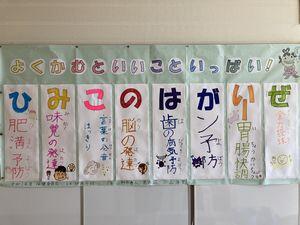 よくかむといいこといっぱい!
ひ
肥満予防
み
味覚の発達
こ
言葉の発音
はっきり
の
脳の発達
は
歯の病気予防
が
ガン予防
い
胃腸快調
ぜ
全力投球